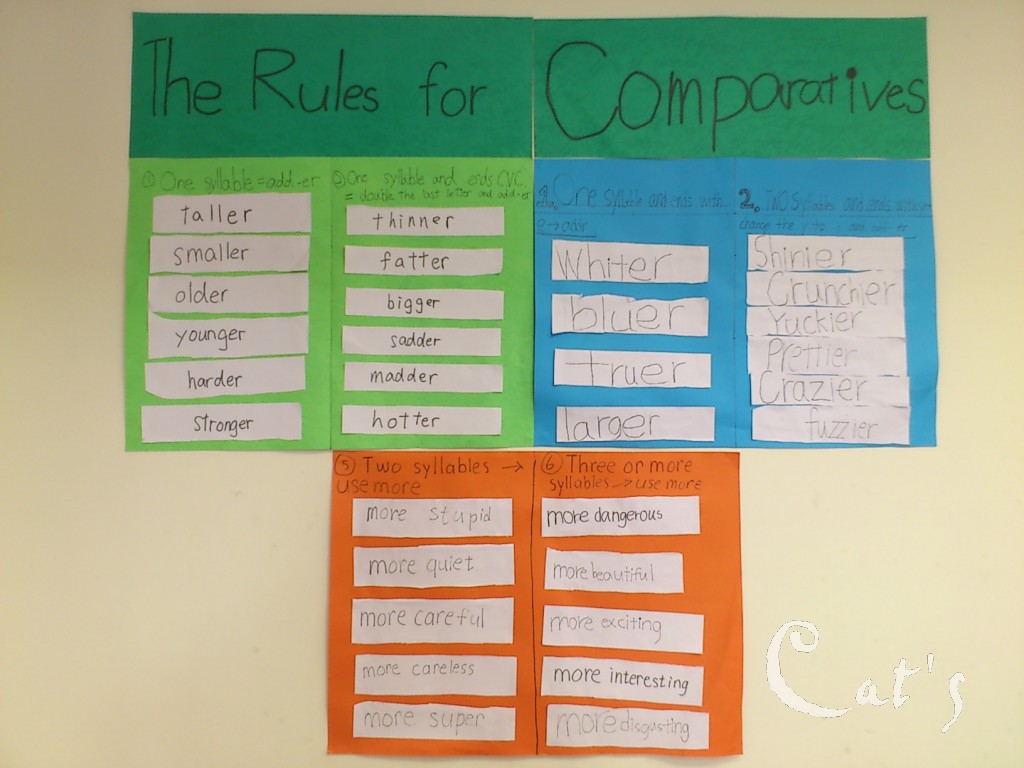 The Rules for Comparatives
① One syllable = add -er
taller
smaller
older
younger
harder
stronger
② One syllable and ends CVC
= double the last letter and add -er
thinner
fatter
bigger
sadder
madder
hotter
One syllable and ends with
e → add r
Whiter
bluer
truer
larger
2. TWO Syllables and ends with
change the y to i and add -er
Shinier
Crunchier
Yuckier
Prettier
Crazier
fuzzier
⑤ Two syllables →
use more
more stupid
more quiet
more careful
more careless
more super
⑥ Three or more
syllables → use more
more dangerous
more beautiful
more exciting
more interesting
more disgusting
Cat's